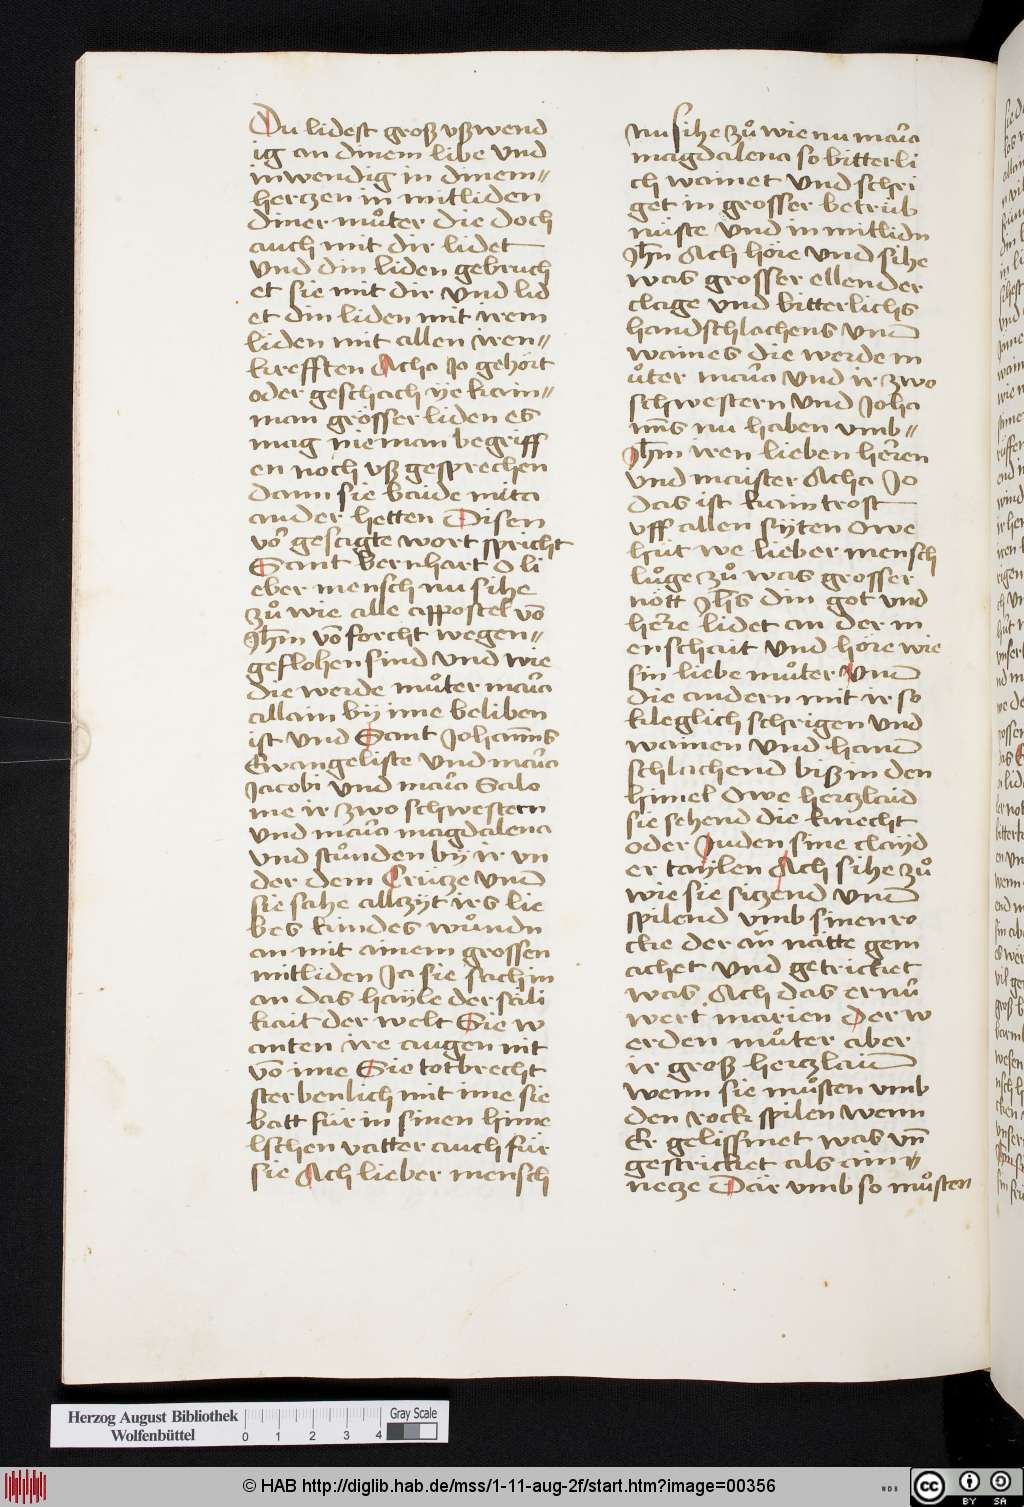 Du lidest groß vßwend
ig an dinem libe vnd
inwendig in dinem〃
herczen in mitliden
diner můter die doch
auch mit dir lidet
vnd din liden gebruch
et sie mit dir vnd lid
et din liden mit irem
liden mit allen iren〃
krefften Acha Jo gehört
oder geschach ye kain〃
man grösser liden es
mag nieman begriff
en noch vß gesprechen
dann sie baide mita
ander hetten Disen
vor̄ gesagte wort spricht
Sant bernhart O li
eber mensch nu sihe
zů wie alle appostel vō
Jh̄m vō forcht wegen〃
geflohen sind vnd wie
die werde můter mar̄a
allain bÿ ime beliben
ist vnd Sant Johan̄ns
Ewangeliste vnd mar̄a
Jacobi vnd mar̄a Salo
me ir zwo schwestern
vnd mar̄a magdalena
vnd stůnden bÿ ir vn
der dem Crücze vnd̄
sie sahe allczÿt irs lie
bes kindes wůndn
an mit ainem grossen
mitliden Ja sie sach in
an das hayle der säli
kait der welt Sie w
anten ire augen nit
vō ime Sie totbrecht
sterbenlich mit ime sie
batt für in sinen hime
lschen vatter auch für
sie Ach lieber mensch
nu sihe zů wie nu mar̄a
magdalena so bitterli
ch wainet vnd schri
get in grosser betrüb
nüste vnd in mitlidn
Jh̄n Ach höre vnd sihe
was grosser ellender
clage vnd bitterlichs
handschlachens vnd̄
waines die werde m
ůter mar̄a vnd ir zwo
schwestern vnd Joha
nn̄s nu haben vmb〃
Jh̄m iren lieben her̄ren
vnd maister Acha Jo
das ist kain trost
vff allen sÿten Owe
hüt we lieber mensch
lůge zů was grosser
nött Jh̄s din got vnd
her̄re lidet an der m
enschait vnd höre wie
sin liebe můter vnd̄
die andern mit ir so
kleglich schrigen vnd
wainen vnd hand̄
schlachend biß in den
himel Owe herczlaid
sie sehend die knecht
oder Juden sine clayd
er taÿlen Ach sihe zů
wie sie siczend vnd̄
spilend vmb sinen ro
cke der ān nätte gem
achet vnd getricket
was Ach das er nů
wert marien Der w
erden můter aber
ir groß herczlaid̄
wenn sie můsten vmb
den rock spilen wenn
Er gelissmet was vn̄
gestricket als ain〃
necze Dar vmb so můsten
Herzog August Bibliothek
Wolfenbüttel
Gray Scale
0 1 2 3 4
© HAB http://diglib.hab.de/mss/1-11-aug-2f/start.htm?image=00356
WDB
cc BY SA